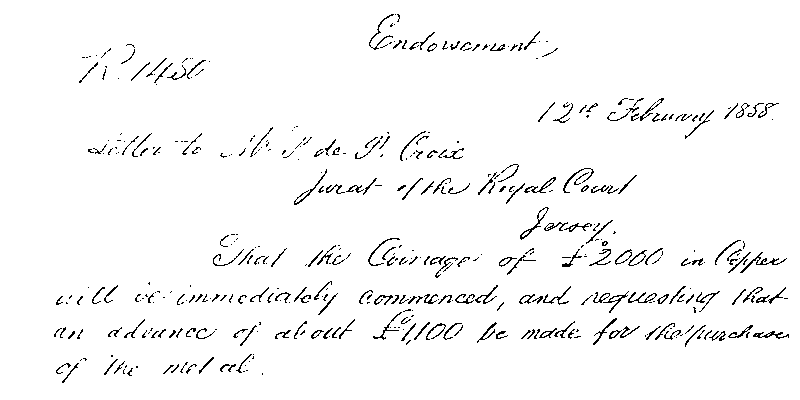 Endowement,
R. 1450
12th February 1858.
Letter to Mr P. de P. Croix
Jurat of the Royal Court
Jersey.
That the Coinage of £2000 in Copper
will be immediately commenced, and requesting that
an advance of about £1,100 be made for the purchase
of the metal.